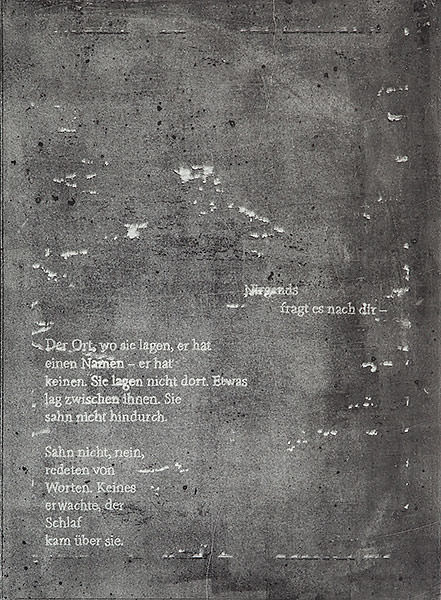 Nirgends
fragt es nach dir –
Der Ort, wo sie lagen, er hat
einen Namen – er hat
keinen. Sie lagen nicht dort. Etwas
lag zwischen ihnen. Sie
sahn nicht hindurch.
Sahn nicht, nein,
redeten von
Worten. Keines
erwachte, der
Schlaf
kam über sie.